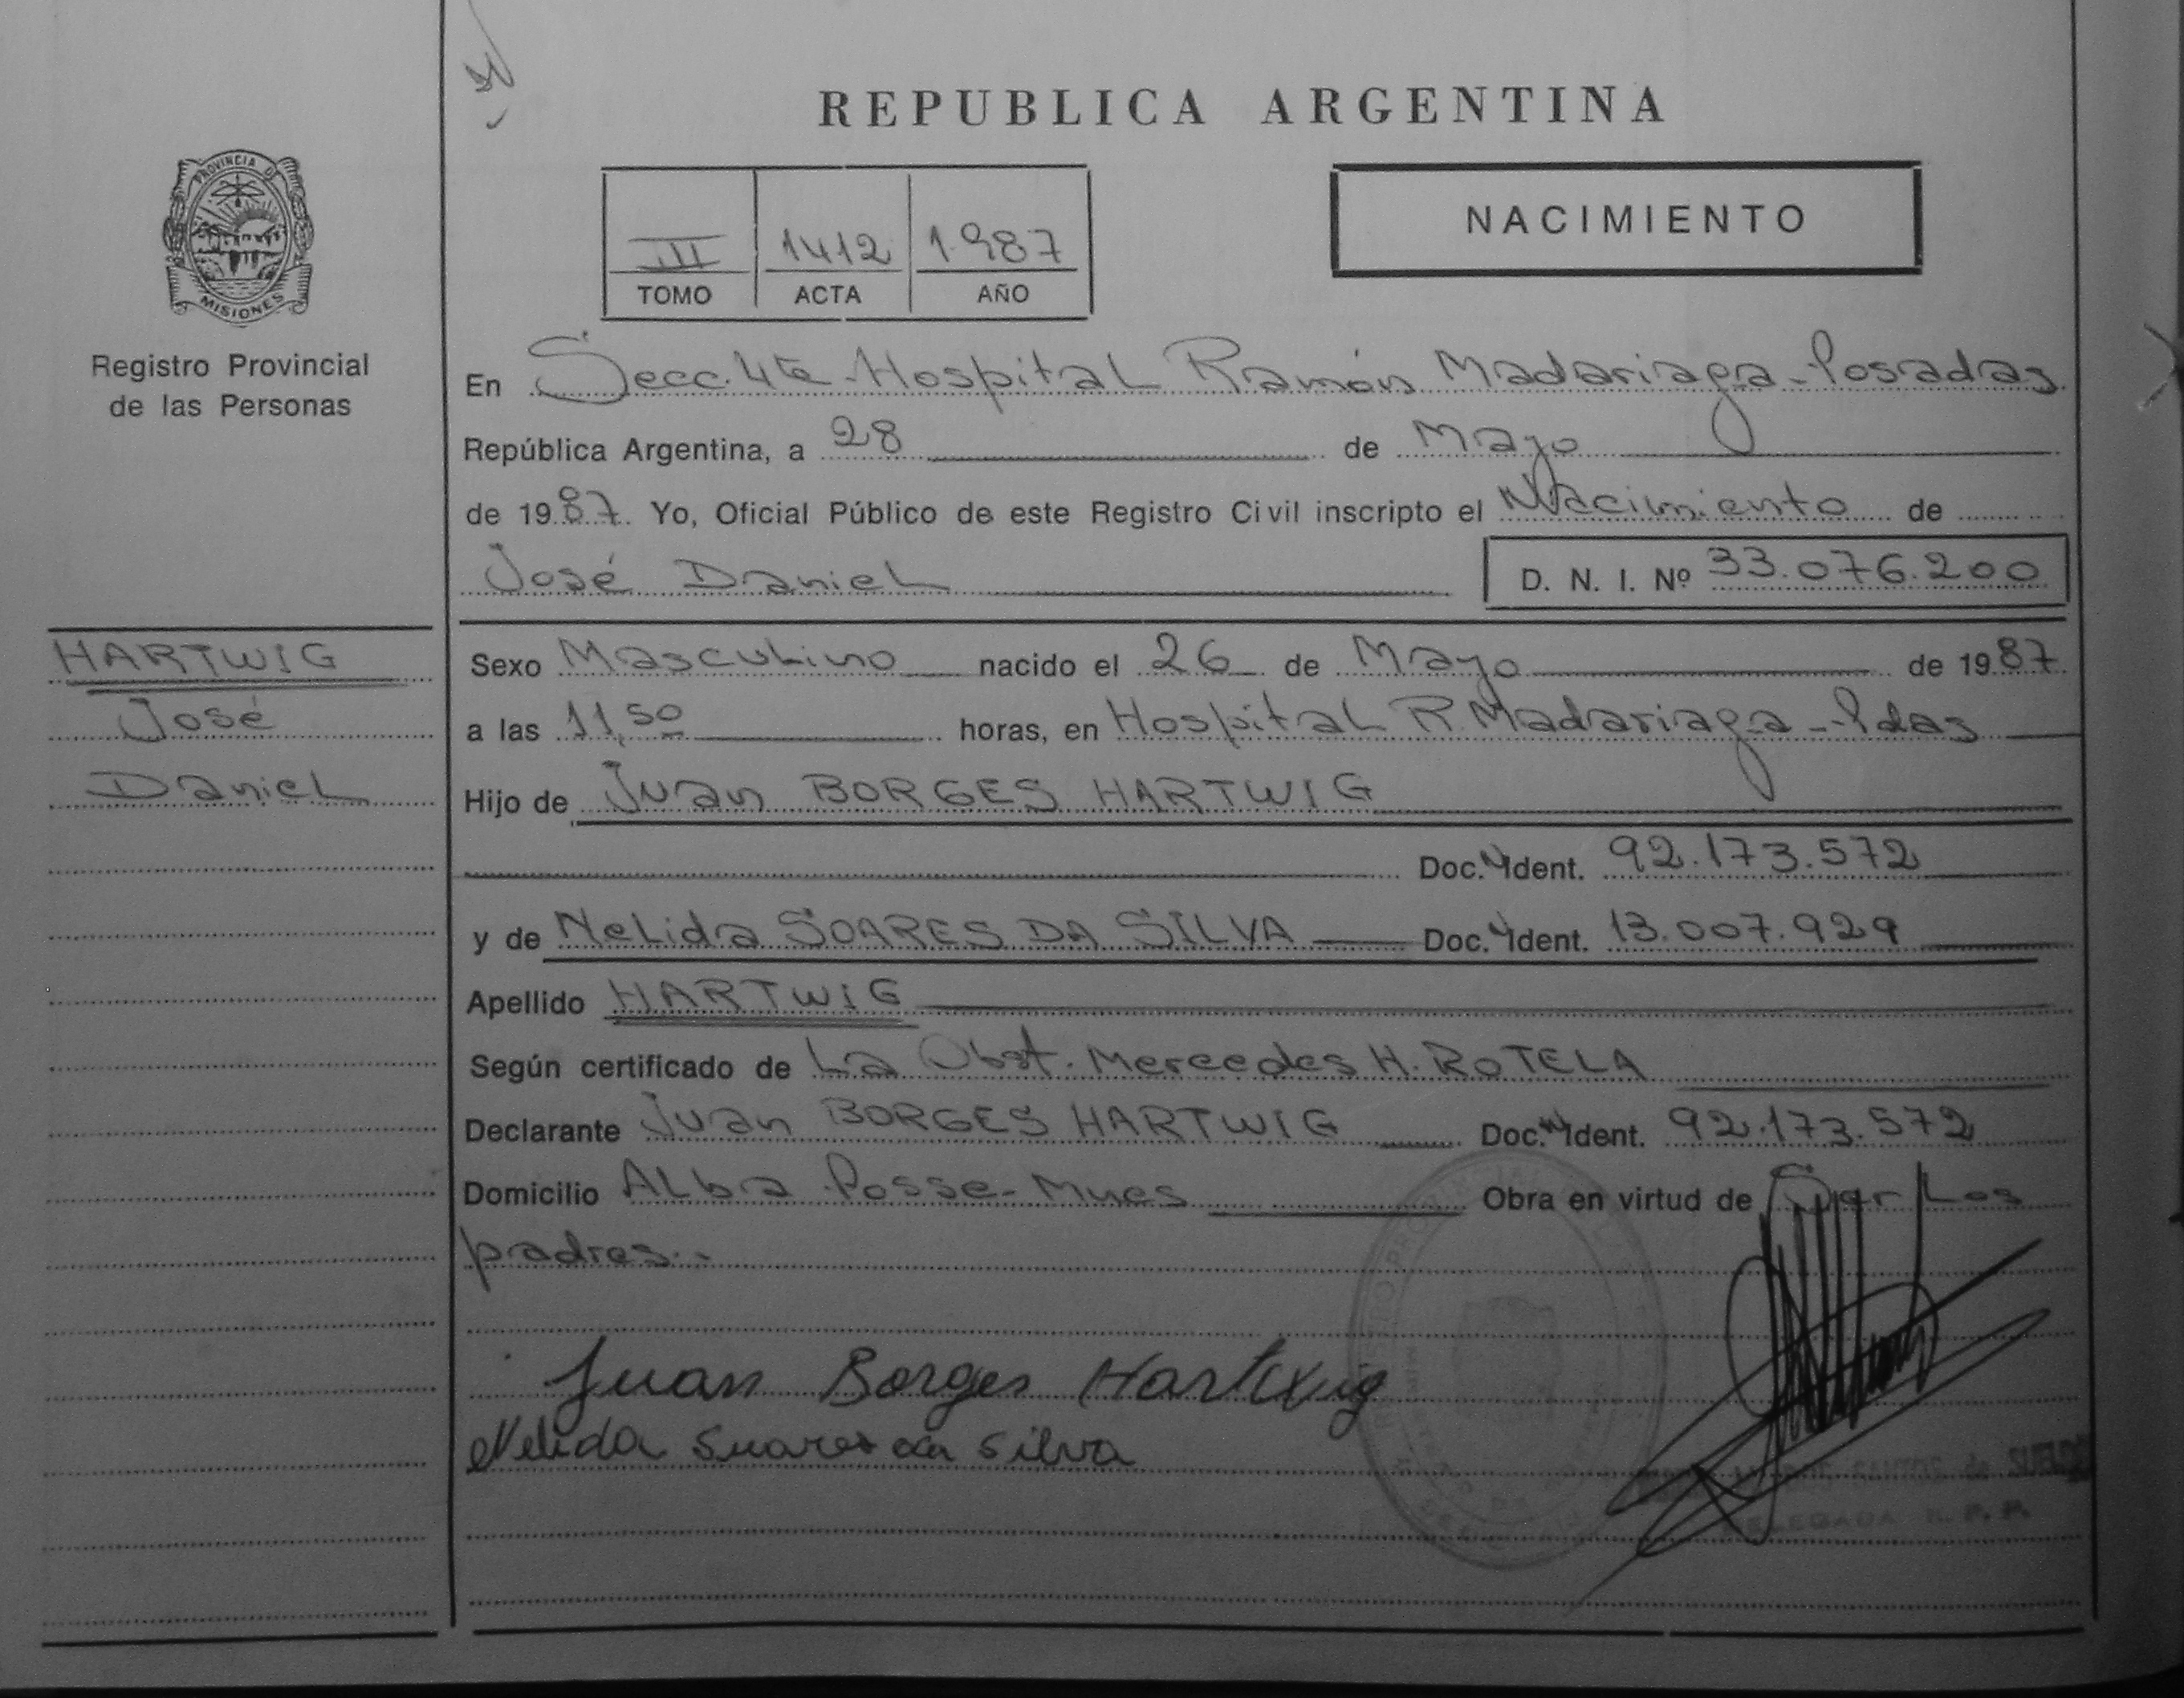 REPUBLICA ARGENTINA
PROVINCIA DE
MISIONES
Registro Provincial
de las Personas
HARTWIG
José
Daniel
III 1412 1.987
TOMO ACTA AÑO
NACIMIENTO
En Secc. 4ta - Hospital Ramón Madariaga - Posadas
República Argentina, a 28 de Mayo
de 1987. Yo, Oficial Público de este Registro Civil inscripto el Nacimiento de
José Daniel D. N. I. Nº 33.076.200
Sexo Masculino nacido el 26 de Mayo de 1987
a las 11,50 horas, en Hospital R. Madariaga - Pdas
Hijo de Juan BORGES HARTWIG
Doc. Ident. 92.173.572
y de Nelida SOARES DA SILVA Doc. Ident. 13.007.929
Apellido HARTWIG
Según certificado de La Obst. Mercedes H. ROTELA
Declarante Juan BORGES HARTWIG Doc. Ident. 92.173.572
Domicilio Alba Posse - Mnes Obra en virtud de Ser Los
padres.-
Juan Borges Hartwig
Nelida Suares da Silva
DELEGADA R. P. P.